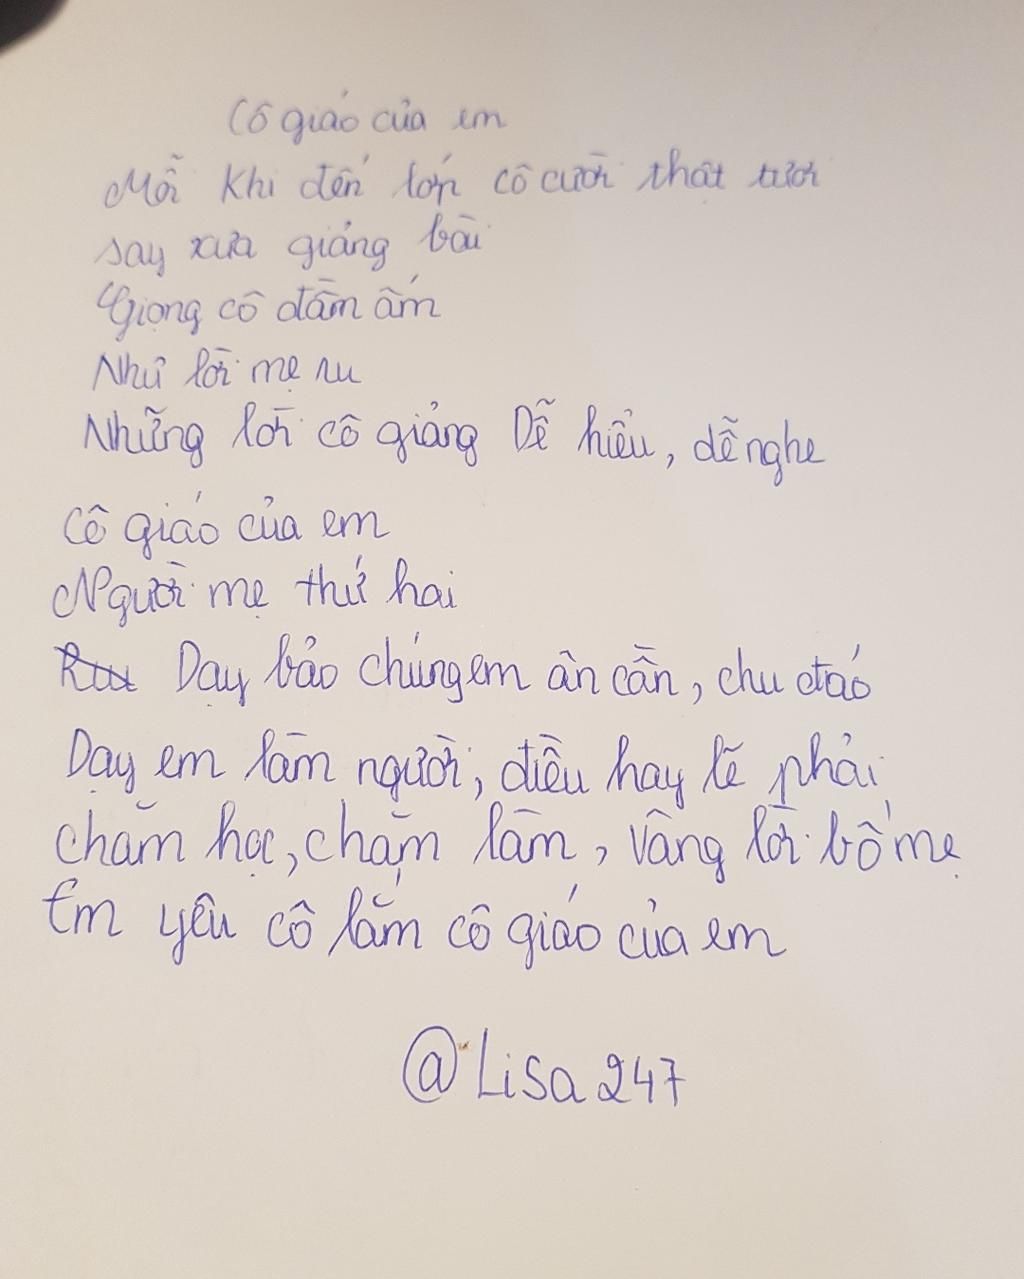 Cô giáo của em
Mỗi khi đến lớp cô cười thật tươi
say xưa giảng bài
Giọng cô đầm ấm
Như lời mẹ ru
Những lời cô giảng Dễ hiểu, dễ nghe
Cô giáo của em
Người mẹ thứ hai
Dạy bảo chúng em ân cần, chu đáo
Dạy em làm người, điều hay lẽ phải
chăm học, chăm làm, vâng lời bố mẹ
Em yêu cô lắm cô giáo của em
@Lisa247